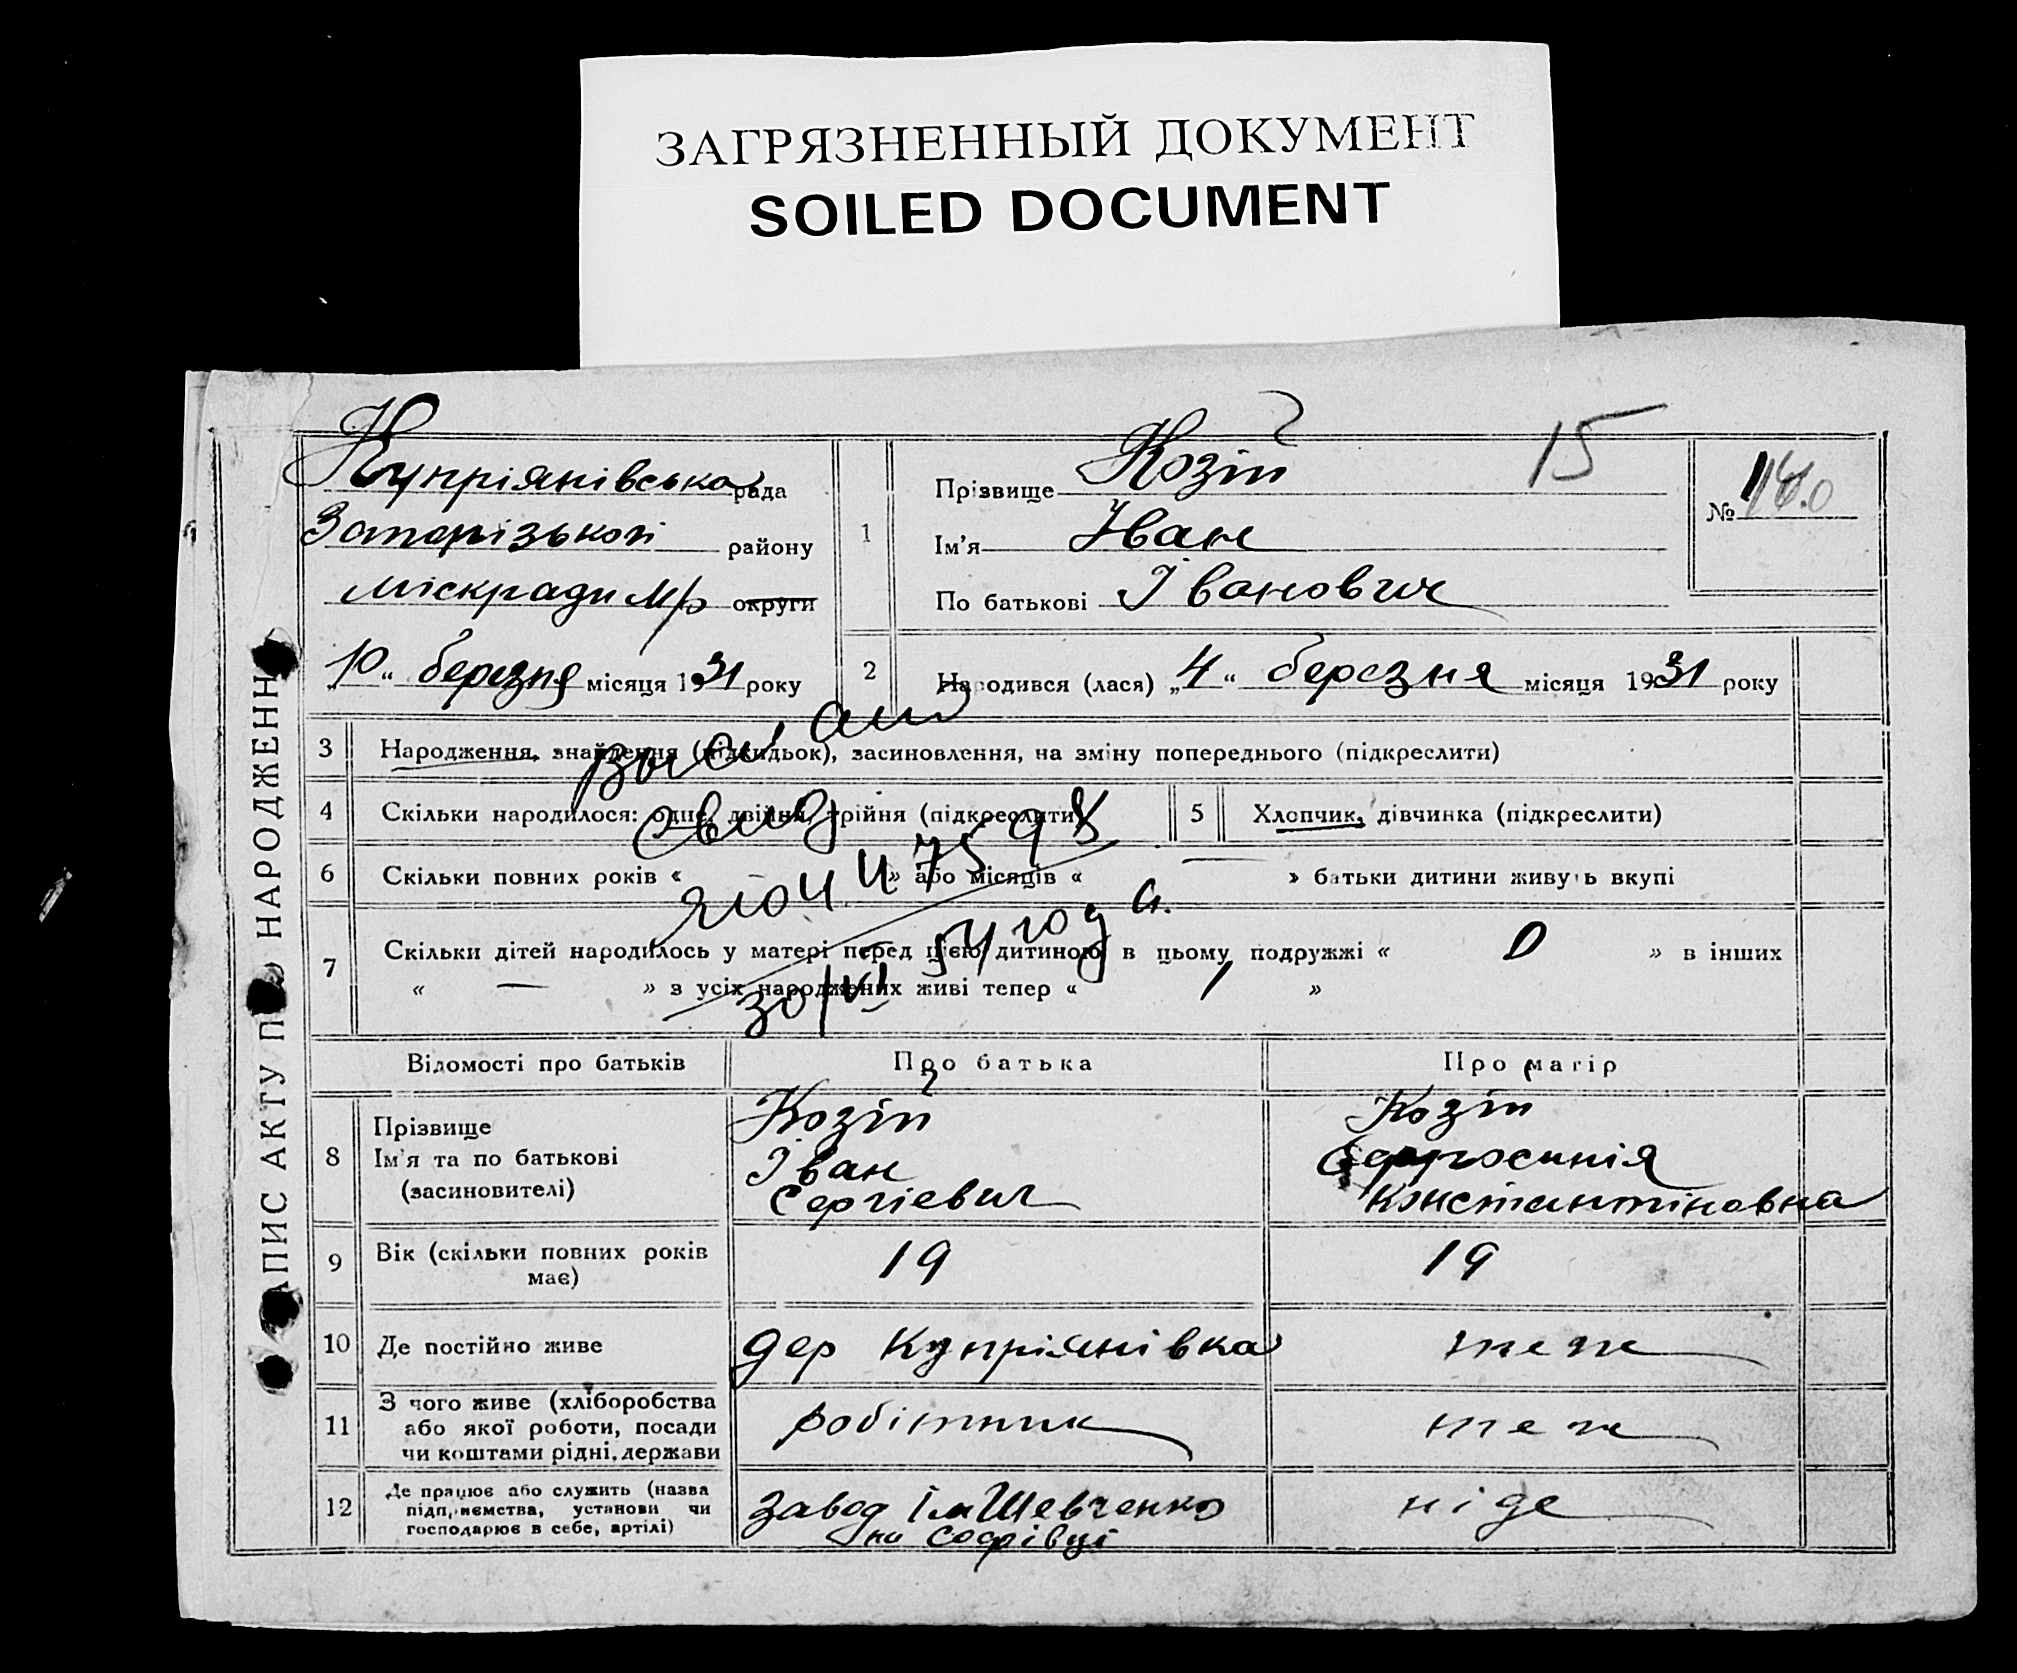 ЗАГРЯЗНЕННЫЙ ДОКУМЕНТ
SOILED DOCUMENT
Купріянівська рада
Запорізької району
міскради М/р округи
„10“ березня місяця 1931 року
1
Прізвище Козій
Ім'я Іван
По батькові Іванович
15
№
2 Народився (лася) „4“ березня місяця 1931 року
ЗАПИС АКТУ ПРО НАРОДЖЕННЯ
3 Народження, знайдення (підкидьок), засиновлення, на зміну попереднього (підкреслити)
4 Скільки народилося: одне, двійня, трійня (підкреслити)
5 Хлопчик, дівчинка (підкреслити)
6 Скільки повних років « » або місяців « — » батьки дитини живуть вкупі
7 Скільки дітей народилось у матері перед цією дитиною в цьому подружжі « 0 » в інших
« — » з усіх народжених живі тепер « 1 »
30/VI 54 года.
Відомості про батьків Про батька Про матір
8 Прізвище
Ім'я та по батькові
(засиновителі)
Козій
Іван
Сергієвич
Козій
Констянтіновна
9 Вік (скільки повних років
має)
19
19
10 Де постійно живе
дер Купріянівка
теж
11 З чого живе (хліборобства
або якої роботи, посади
чи коштами рідні, держави
робітник
теж
12 Де працює або служить (назва
підприємства, установи чи
господарює в себе, артілі)
Завод Ім Шевченко
на Софівці
ніде